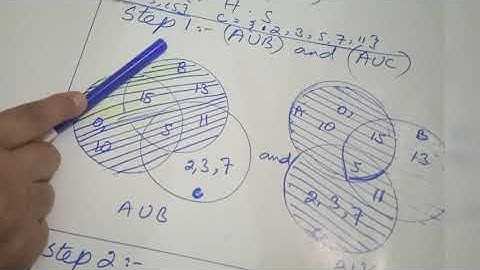 , 15}
H . S
C = { 2, 3, 5, 7, 11}
Step 1:- (AUB) and (AUC)
B
15
13
0,
10
5
11
2, 3, 7
C
AUB
and
A
0,
10
15
B
13
5
11
2, 3, 7
Step 2 :-